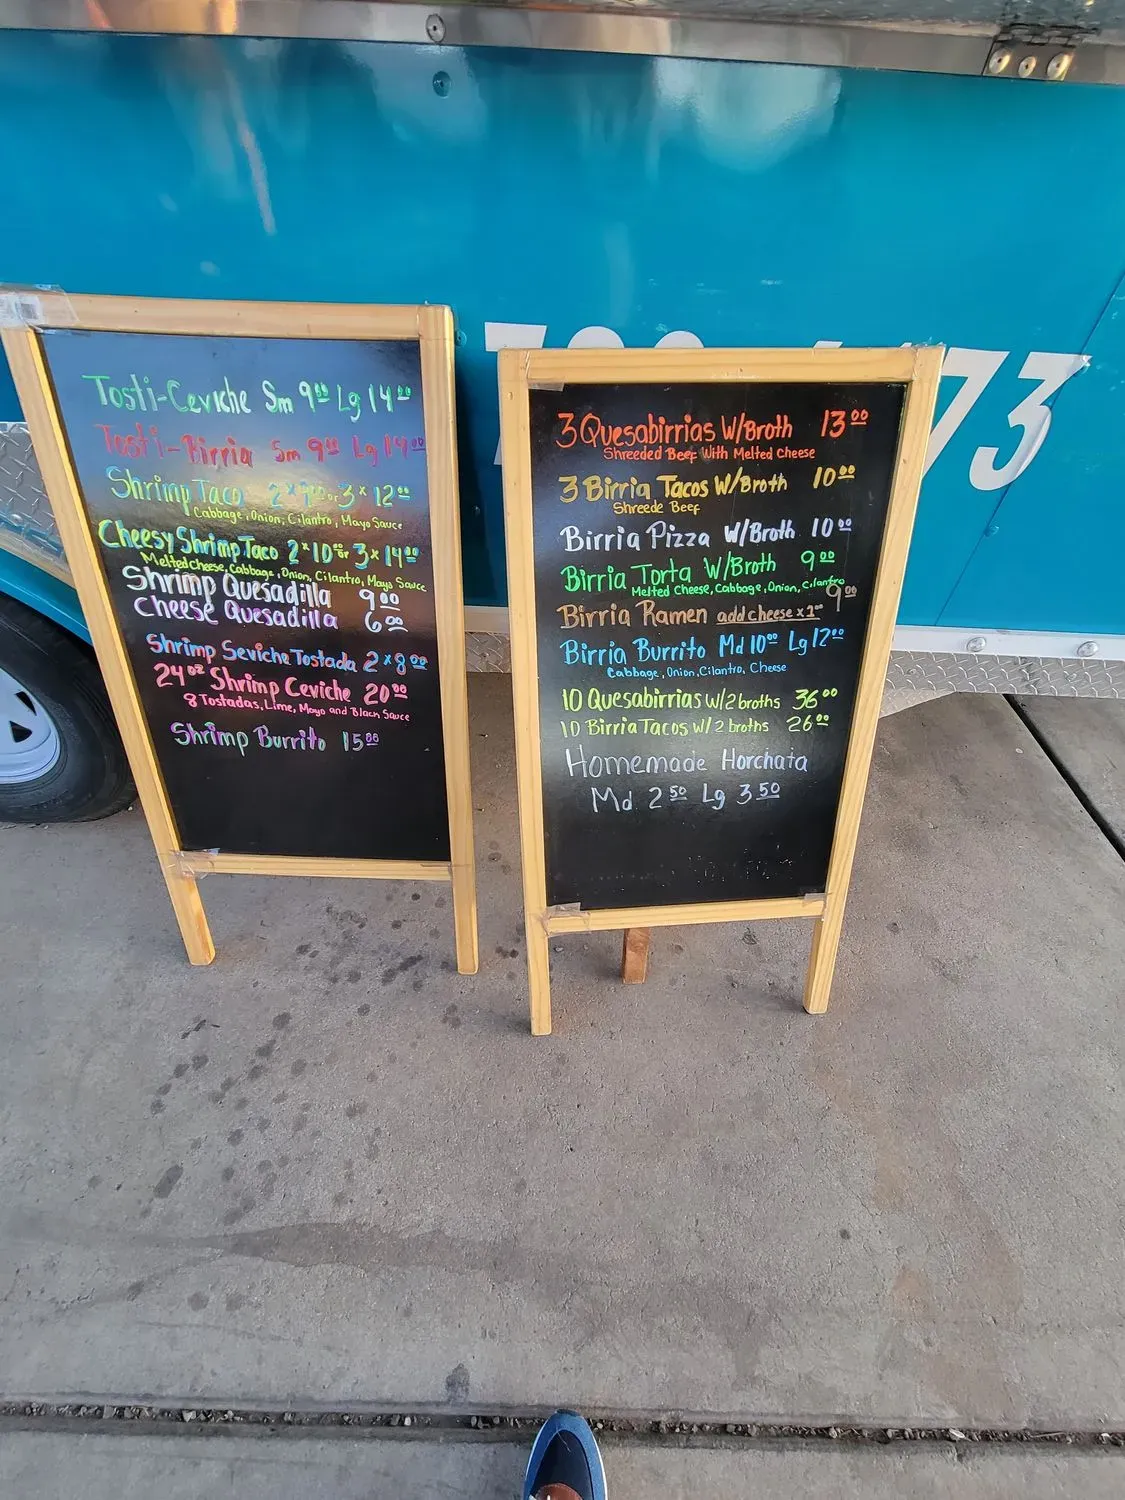 Tosti-Ceviche Sm 9⁰⁰ Lg 14⁰⁰
Tosti-Birria Sm 9⁰⁰ Lg 14⁰⁰
Shrimp Taco 2 x 9⁰⁰ or 3 x 12⁰⁰
Cabbage, Onion, Cilantro, Mayo Sauce
Cheesy Shrimp Taco 2 x 10⁰⁰ or 3 x 14⁰⁰
Melted cheese, Cabbage, Onion, Cilantro, Mayo Sauce
Shrimp Quesadilla 9⁰⁰
Cheese Quesadilla 6⁰⁰
Shrimp Seviche Tostada 2 x 8⁰⁰
24oz Shrimp Ceviche 20⁰⁰
8 Tostadas, Lime, Mayo and Black Sauce
Shrimp Burrito 15⁰⁰
3 Quesabirrias W/Broth 13⁰⁰
Shreeded Beef With Melted Cheese
3 Birria Tacos W/Broth 10⁰⁰
Shreede Beef
Birria Pizza W/Broth 10⁰⁰
Birria Torta W/Broth 9⁰⁰
Melted Cheese, Cabbage, Onion, Cilantro
Birria Ramen add cheese x 1⁰⁰ 9⁰⁰
Birria Burrito Md 10⁰⁰ Lg 12⁰⁰
Cabbage, Onion, Cilantro, Cheese
10 Quesabirrias w/2 broths 36⁰⁰
10 Birria Tacos w/2 broths 26⁰⁰
Homemade Horchata
Md 2⁵⁰ Lg 3⁵⁰
73